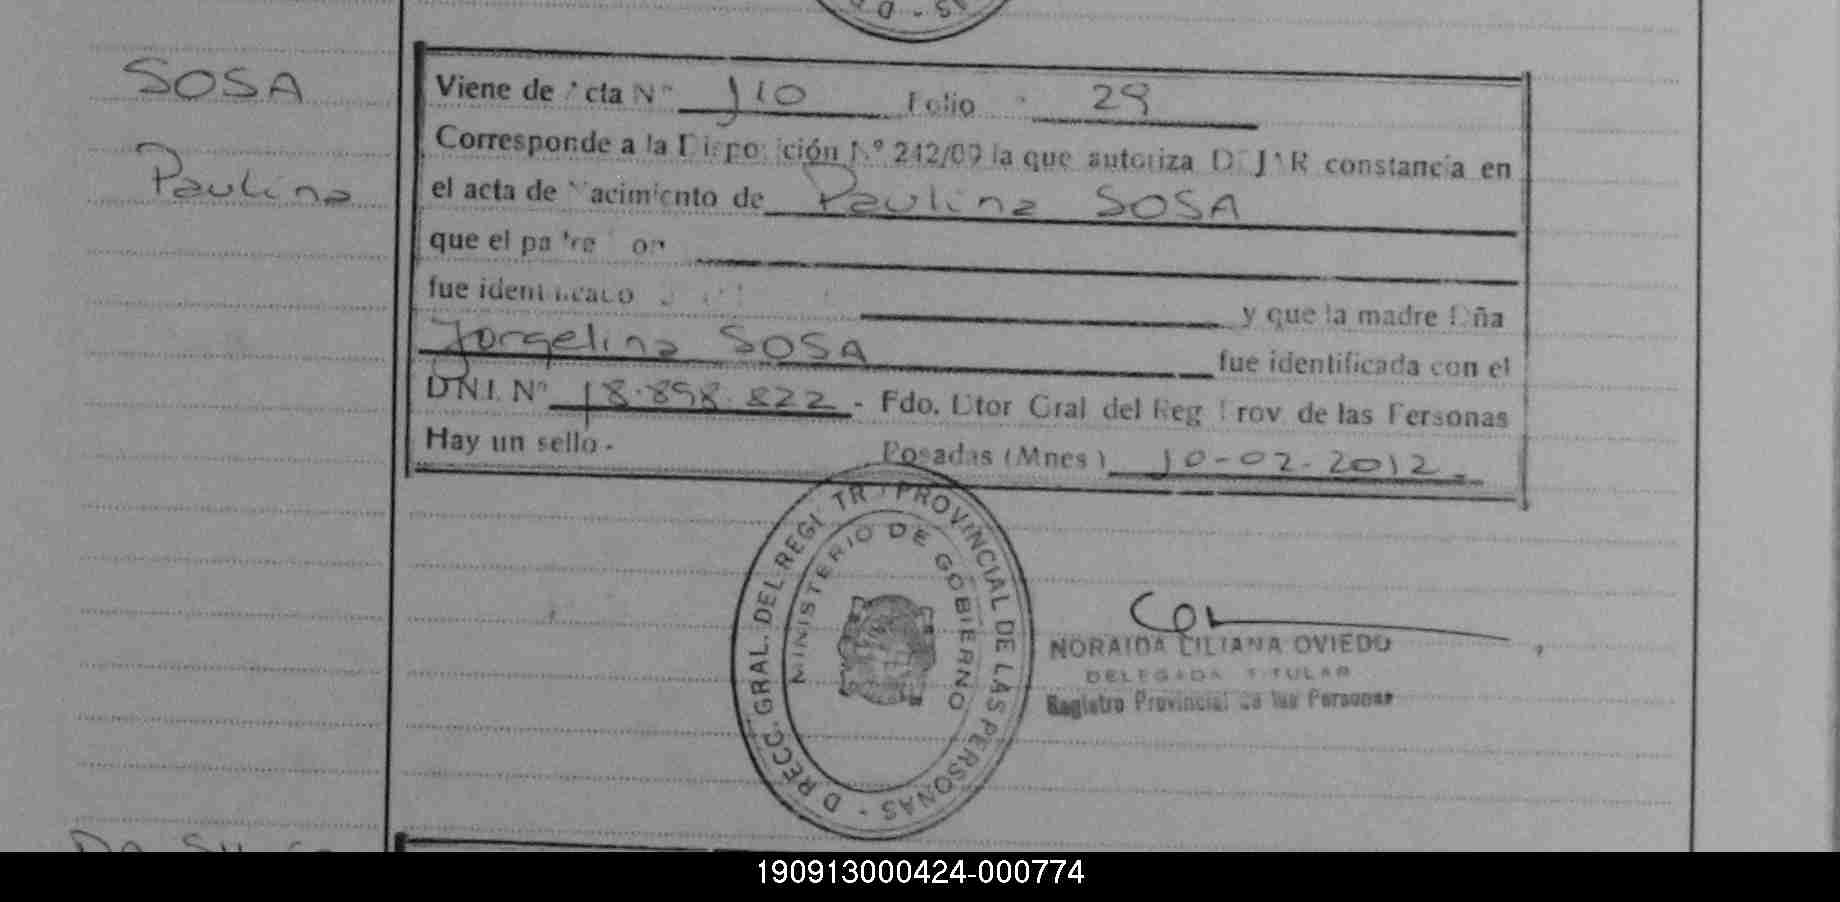 SOSA
Paulina
Viene de Acta Nº 110 Folio 29
Corresponde a la Disposición Nº 242/09 la que autoriza DEJAR constancia en
el acta de Nacimiento de Paulina SOSA
que el padre Don
fue identificado y que la madre Dña
Jorgelina SOSA fue identificada con el
D.N.I. Nº 18.898.822 - Fdo. Dtor Gral del Reg Prov de las Personas
Hay un sello -
Posadas (Mnes) 10-02-2012
DIRECC. GRAL. DEL REGISTRO PROVINCIAL DE LAS PERSONAS
MINISTERIO DE GOBIERNO
NORAIDA LILIANA OVIEDO
DELEGADA TITULAR
Registro Provincial de las Personas
190913000424-000774